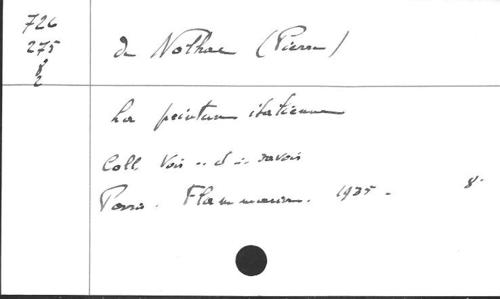 726
275
8
2
de Nolhac (Pierre)
La peinture italienne
Coll. Vois .. et .. savois
Paris. Flammarion. 1935 - 8°